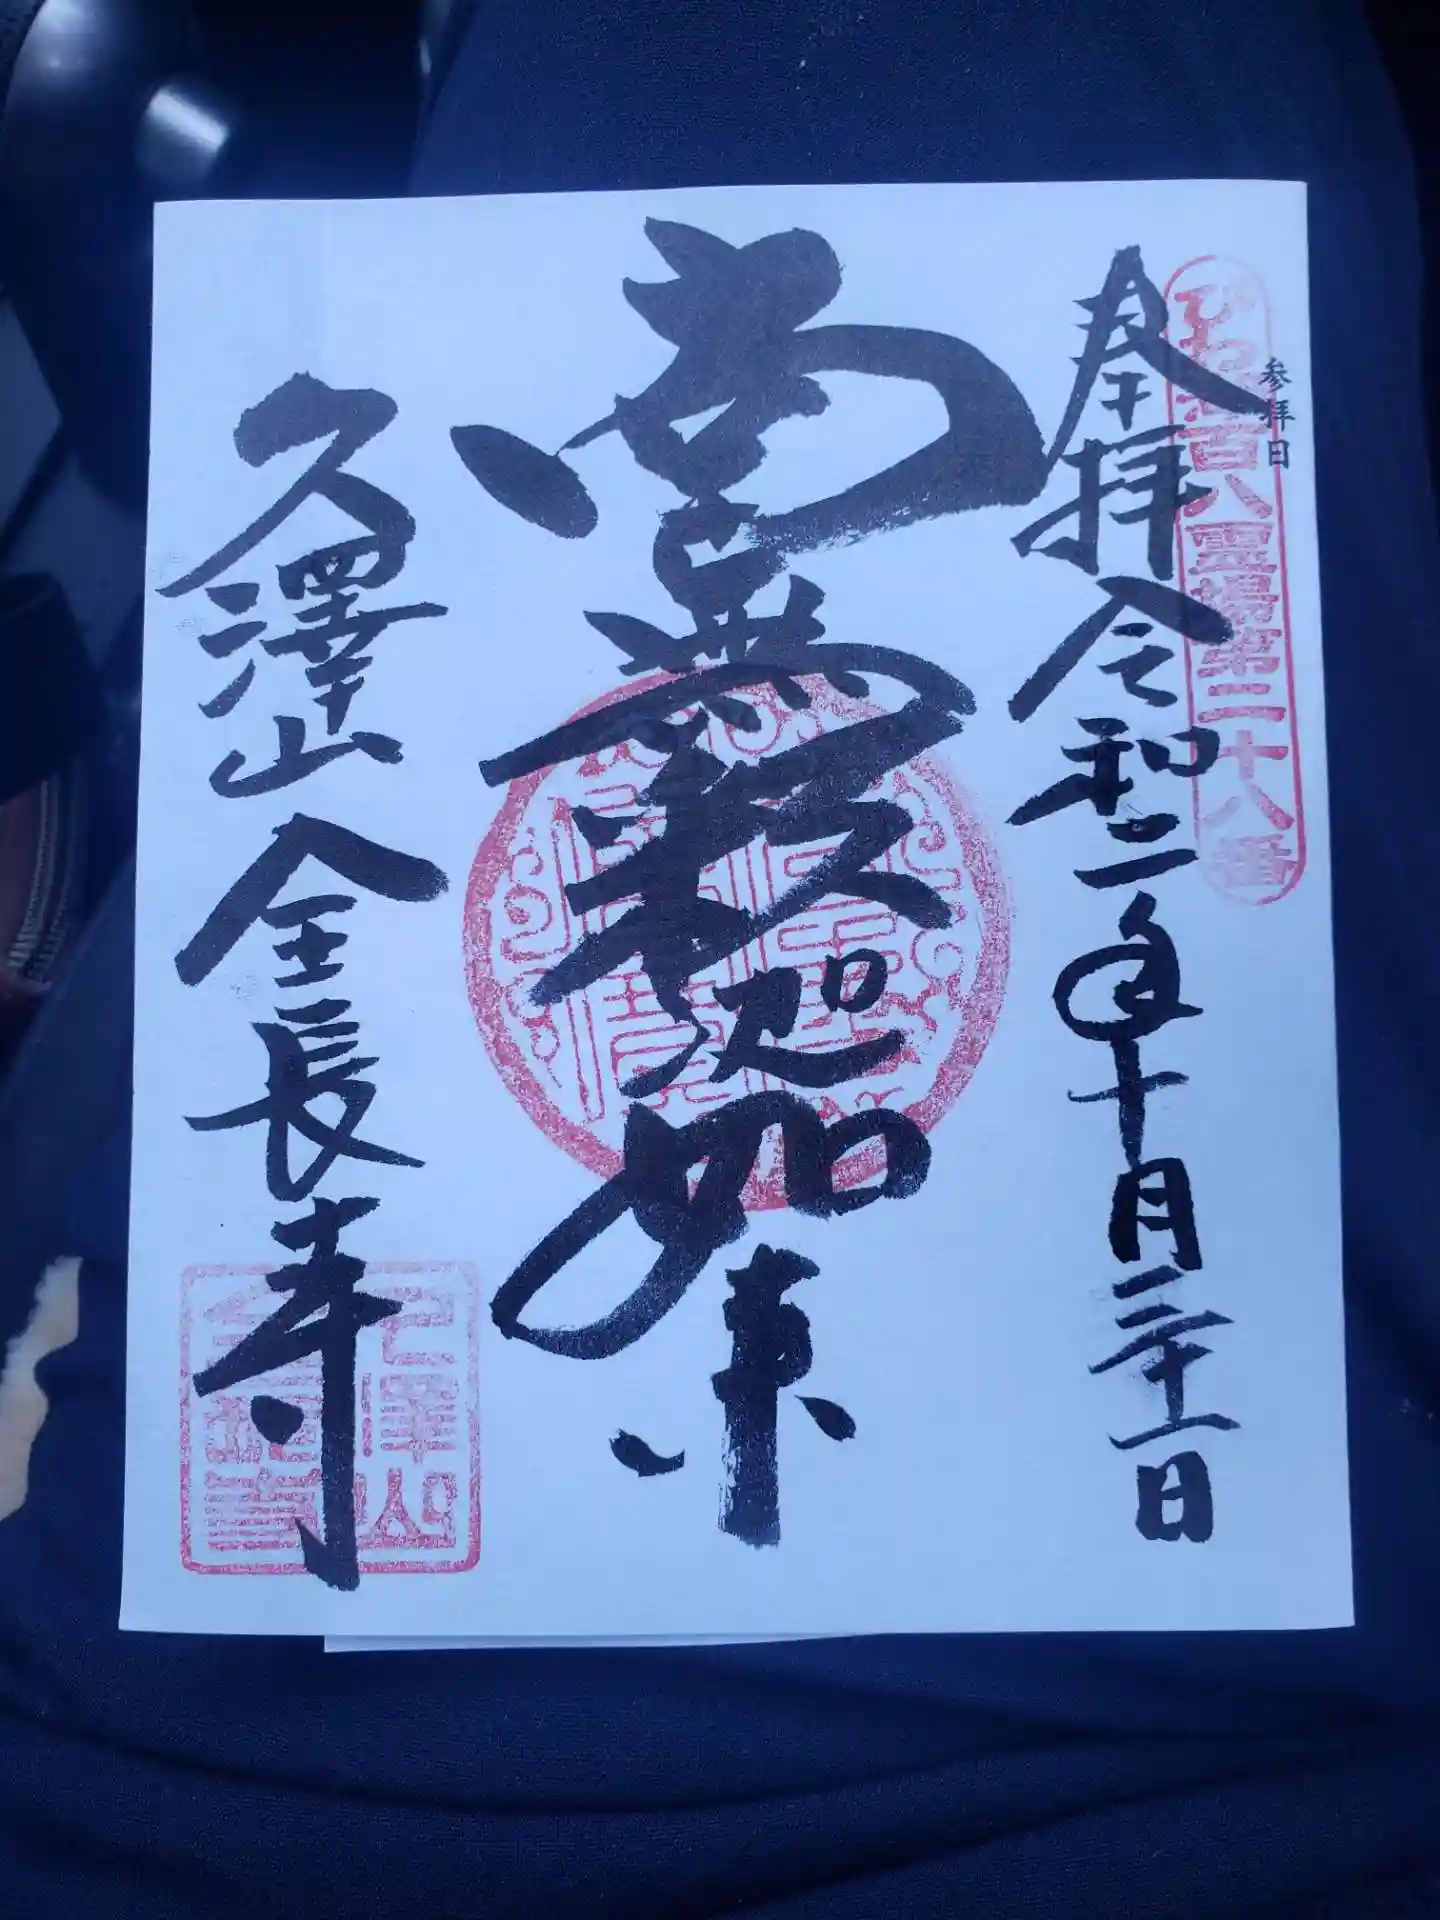 参拝日
びわ湖百八霊場第三十八番
奉拝 令和二年十月二十一日
南無釈迦如来
久澤山 全長寺